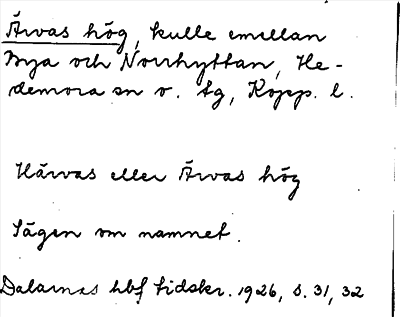 Ärvas hög, kulle emellan
Bya och Norrhyttan, He-
demora sn o. tg, Kopp. l.
Härvas eller Ärvas hög
Sägen om namnet.
Dalarnas hbf tidskr. 1926, s. 31, 32